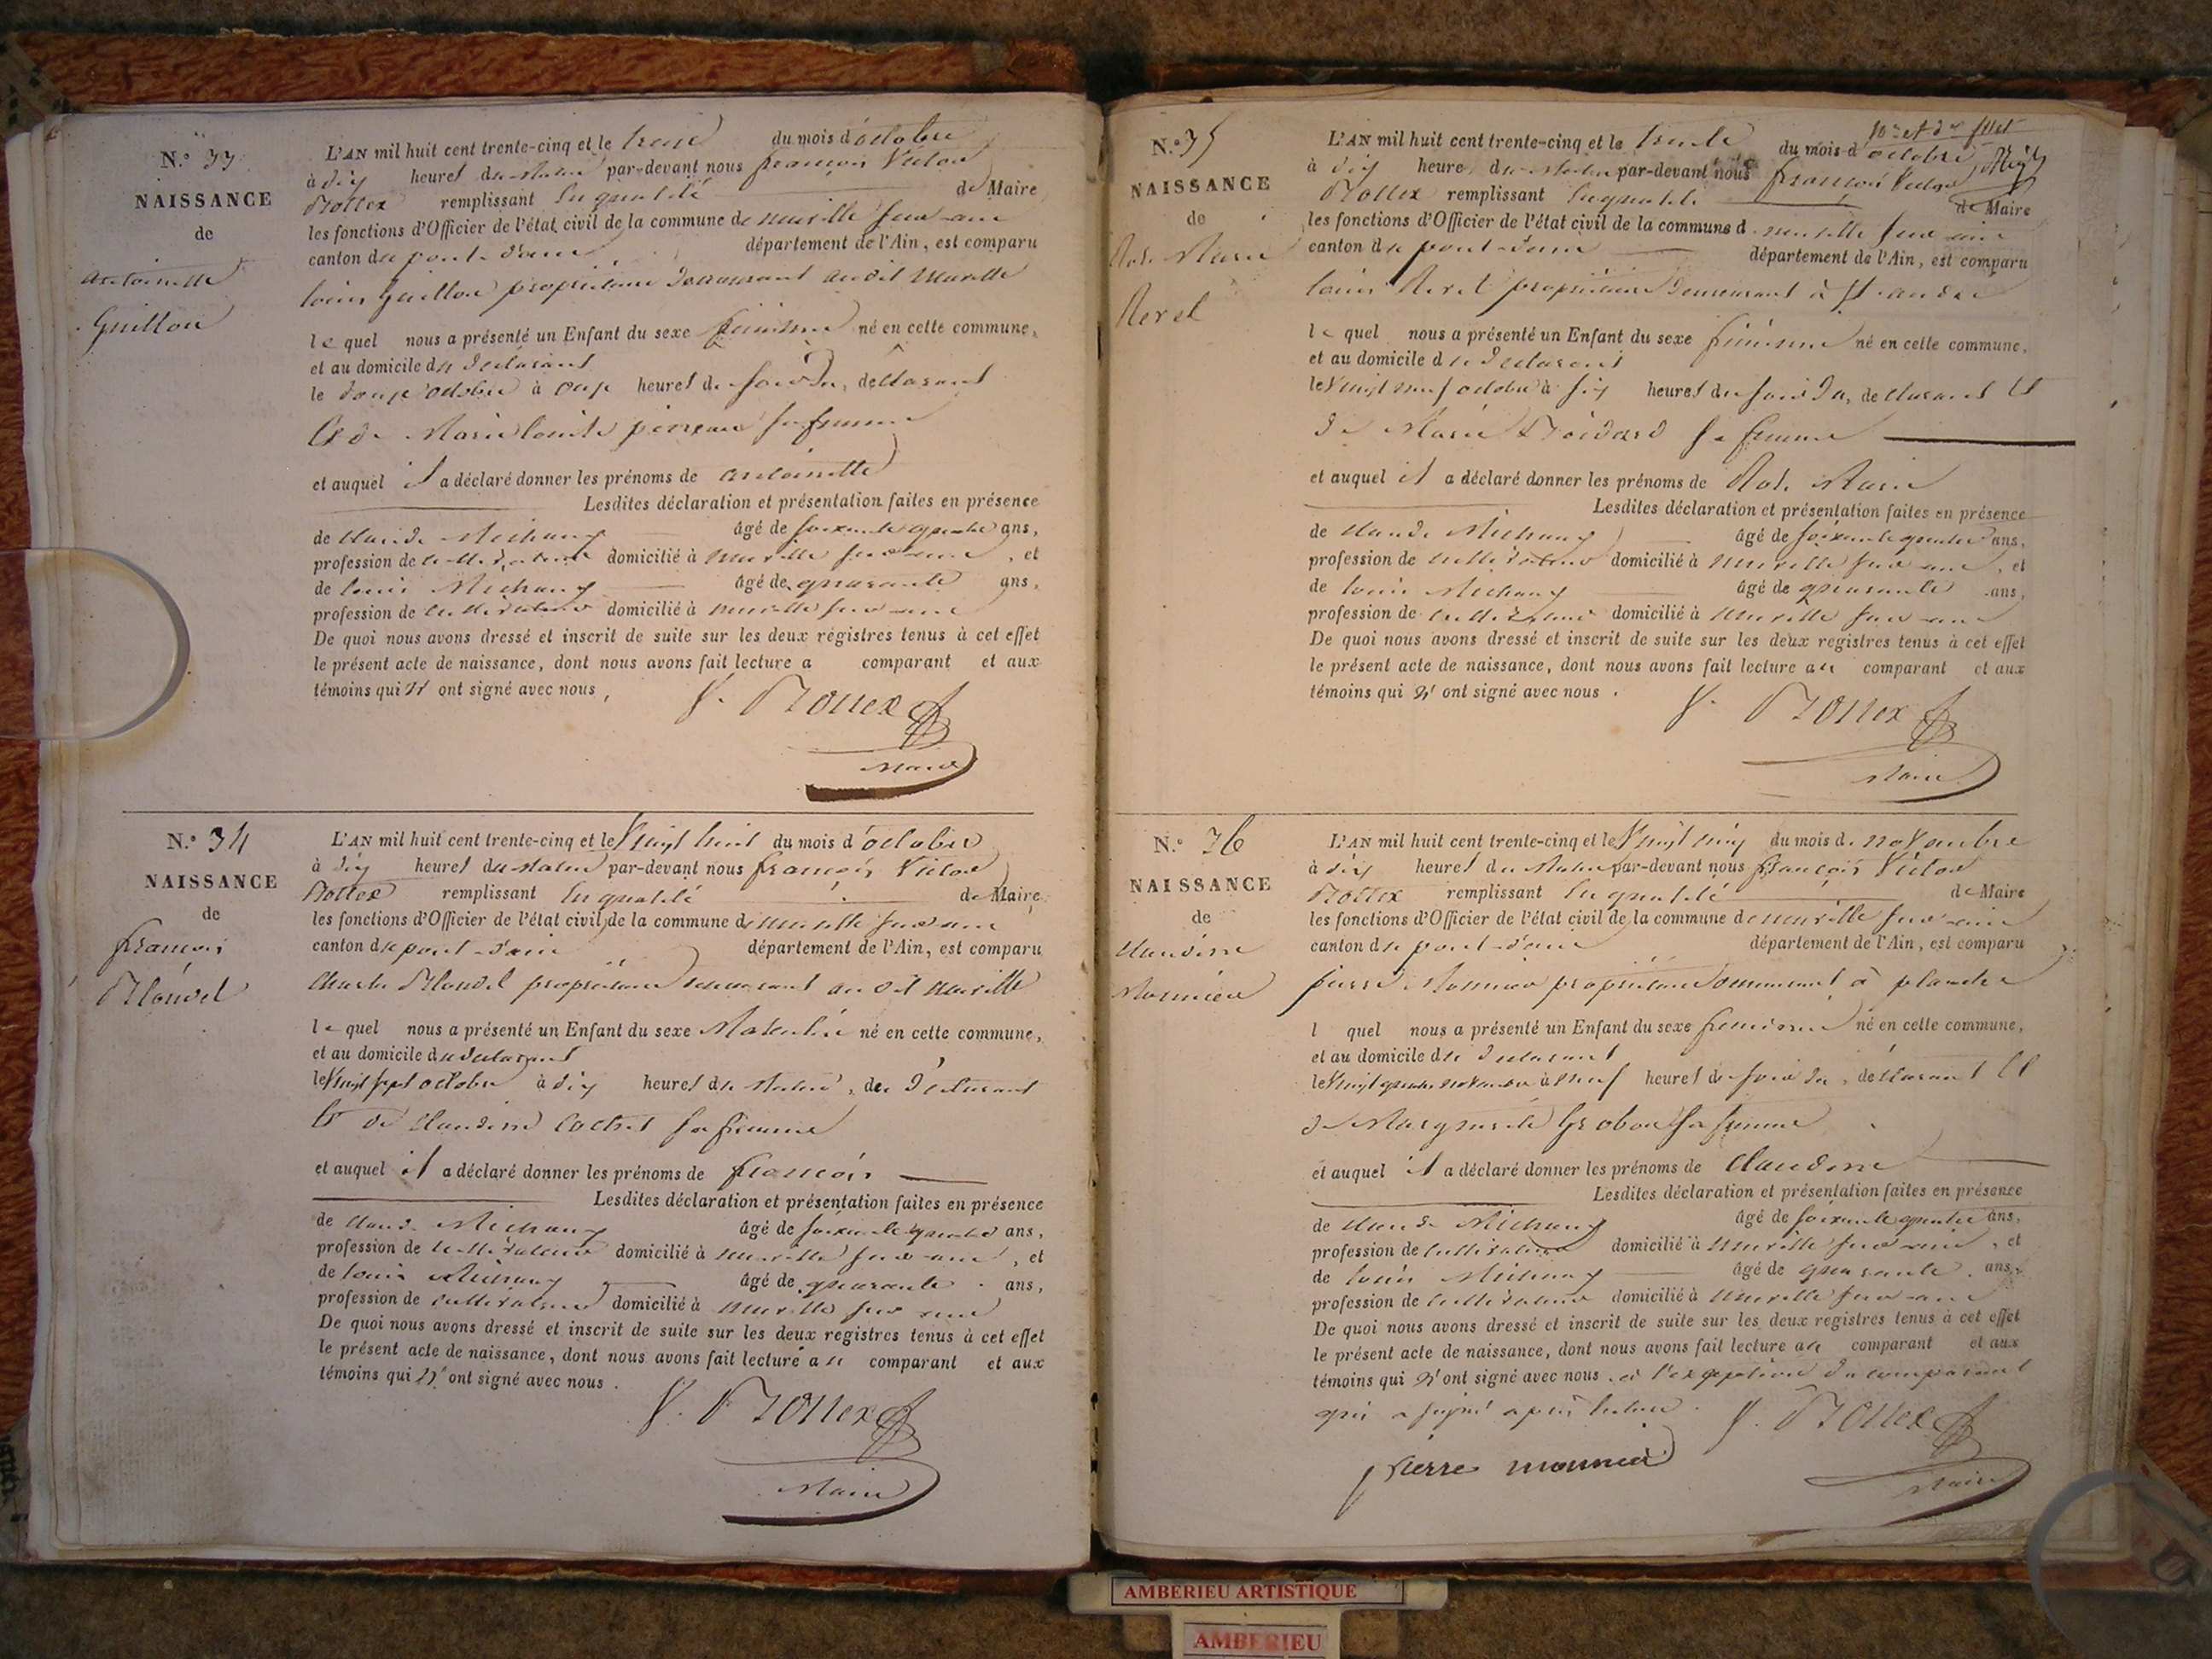 N.° 33
NAISSANCE
de
antoinette
Guillon
L'AN mil huit cent trente-cinq et le treize du mois d'octobre
à dix heures du matin par-devant nous françois Victor
remplissant en qualité de Maire
les fonctions d'Officier de l'état civil de la commune de neuville sur ain
canton de pont-d'ain département de l'Ain, est comparu
louis Guillon propriétaire demeurant audit neuville
lequel nous a présenté un Enfant du sexe féminin né en cette commune,
et au domicile du déclarant
le douze octobre à onze heures du soir du, déclarant
et de Marie sa femme
et auquel il a déclaré donner les prénoms de antoinette
Lesdites déclaration et présentation faites en présence
de claude Michaux âgé de soixante quatre ans,
profession de cultivateur domicilié à neuville sur ain, et
de louis Michaux âgé de quarante ans,
profession de cultivateur domicilié à neuville sur ain
De quoi nous avons dressé et inscrit de suite sur les deux régistres tenus à cet effet
le présent acte de naissance, dont nous avons fait lecture a comparant et aux
témoins qui n' ont signé avec nous,
Maire
N.° 34
NAISSANCE
de
françois
L'AN mil huit cent trente-cinq et le Vingt huit du mois d'octobre
à dix heures du matin par-devant nous françois Victor
remplissant en qualité de Maire
les fonctions d'Officier de l'état civil de la commune de neuville sur ain
canton de pont-d'ain département de l'Ain, est comparu
Charles propriétaire demeurant au dit neuville
lequel nous a présenté un Enfant du sexe Masculin né en cette commune,
et au domicile du déclarant
le Vingt sept octobre à dix heures du matin, de déclarant
et de claudine sa femme
et auquel il a déclaré donner les prénoms de françois
Lesdites déclaration et présentation faites en présence
de claude Michaux âgé de soixante quatre ans,
profession de cultivateur domicilié à neuville sur ain, et
de louis Michaux âgé de quarante ans,
profession de cultivateur domicilié à neuville sur ain
De quoi nous avons dressé et inscrit de suite sur les deux registres tenus à cet effet
le présent acte de naissance, dont nous avons fait lecture au comparant et aux
témoins qui n' ont signé avec nous.
Maire
N.° 35
NAISSANCE
de
Marie
L'AN mil huit cent trente-cinq et le trente du mois d'octobre
à dix heures du matin par-devant nous françois Victor
remplissant en qualité de Maire
les fonctions d'Officier de l'état civil de la commune d neuville sur ain
canton de pont-d'ain département de l'Ain, est comparu
louis propriétaire demeurant à St andré
lequel nous a présenté un Enfant du sexe féminin né en cette commune,
et au domicile du déclarant
le Vingt neuf octobre à six heures du soir du, déclarant et
de Marie sa femme
et auquel il a déclaré donner les prénoms de Marie
Lesdites déclaration et présentation faites en présence
de claude Michaux âgé de soixante quatre ans,
profession de cultivateur domicilié à neuville sur ain, et
de louis Michaux âgé de quarante ans,
profession de cultivateur domicilié à neuville sur ain
De quoi nous avons dressé et inscrit de suite sur les deux registres tenus à cet effet
le présent acte de naissance, dont nous avons fait lecture au comparant et aux
témoins qui n' ont signé avec nous.
Maire
N.° 36
NAISSANCE
de
claudine
Monnier
L'AN mil huit cent trente-cinq et le Vingt cinq du mois de novembre
à dix heures du matin par-devant nous françois Victor
remplissant en qualité de Maire
les fonctions d'Officier de l'état civil de la commune de neuville sur ain
canton de pont-d'ain département de l'Ain, est comparu
pierre Monnier propriétaire demeurant à planche
l quel nous a présenté un Enfant du sexe féminin né en cette commune,
et au domicile du déclarant
le Vingt quatre novembre à neuf heures du soir du, déclarant et
de Marguerite Grobon sa femme
et auquel il a déclaré donner les prénoms de claudine
Lesdites déclaration et présentation faites en présence
de claude Michaux âgé de soixante quatre ans,
profession de cultivateur domicilié à neuville sur ain, et
de louis Michaux âgé de quarante ans,
profession de cultivateur domicilié à neuville sur ain
De quoi nous avons dressé et inscrit de suite sur les deux registres tenus à cet effet
le présent acte de naissance, dont nous avons fait lecture au comparant et aux
témoins qui n' ont signé avec nous. à l'exception du comparant
qui a signé après lecture.
pierre monnier
Maire
AMBERIEU ARTISTIQUE
AMBERIEU